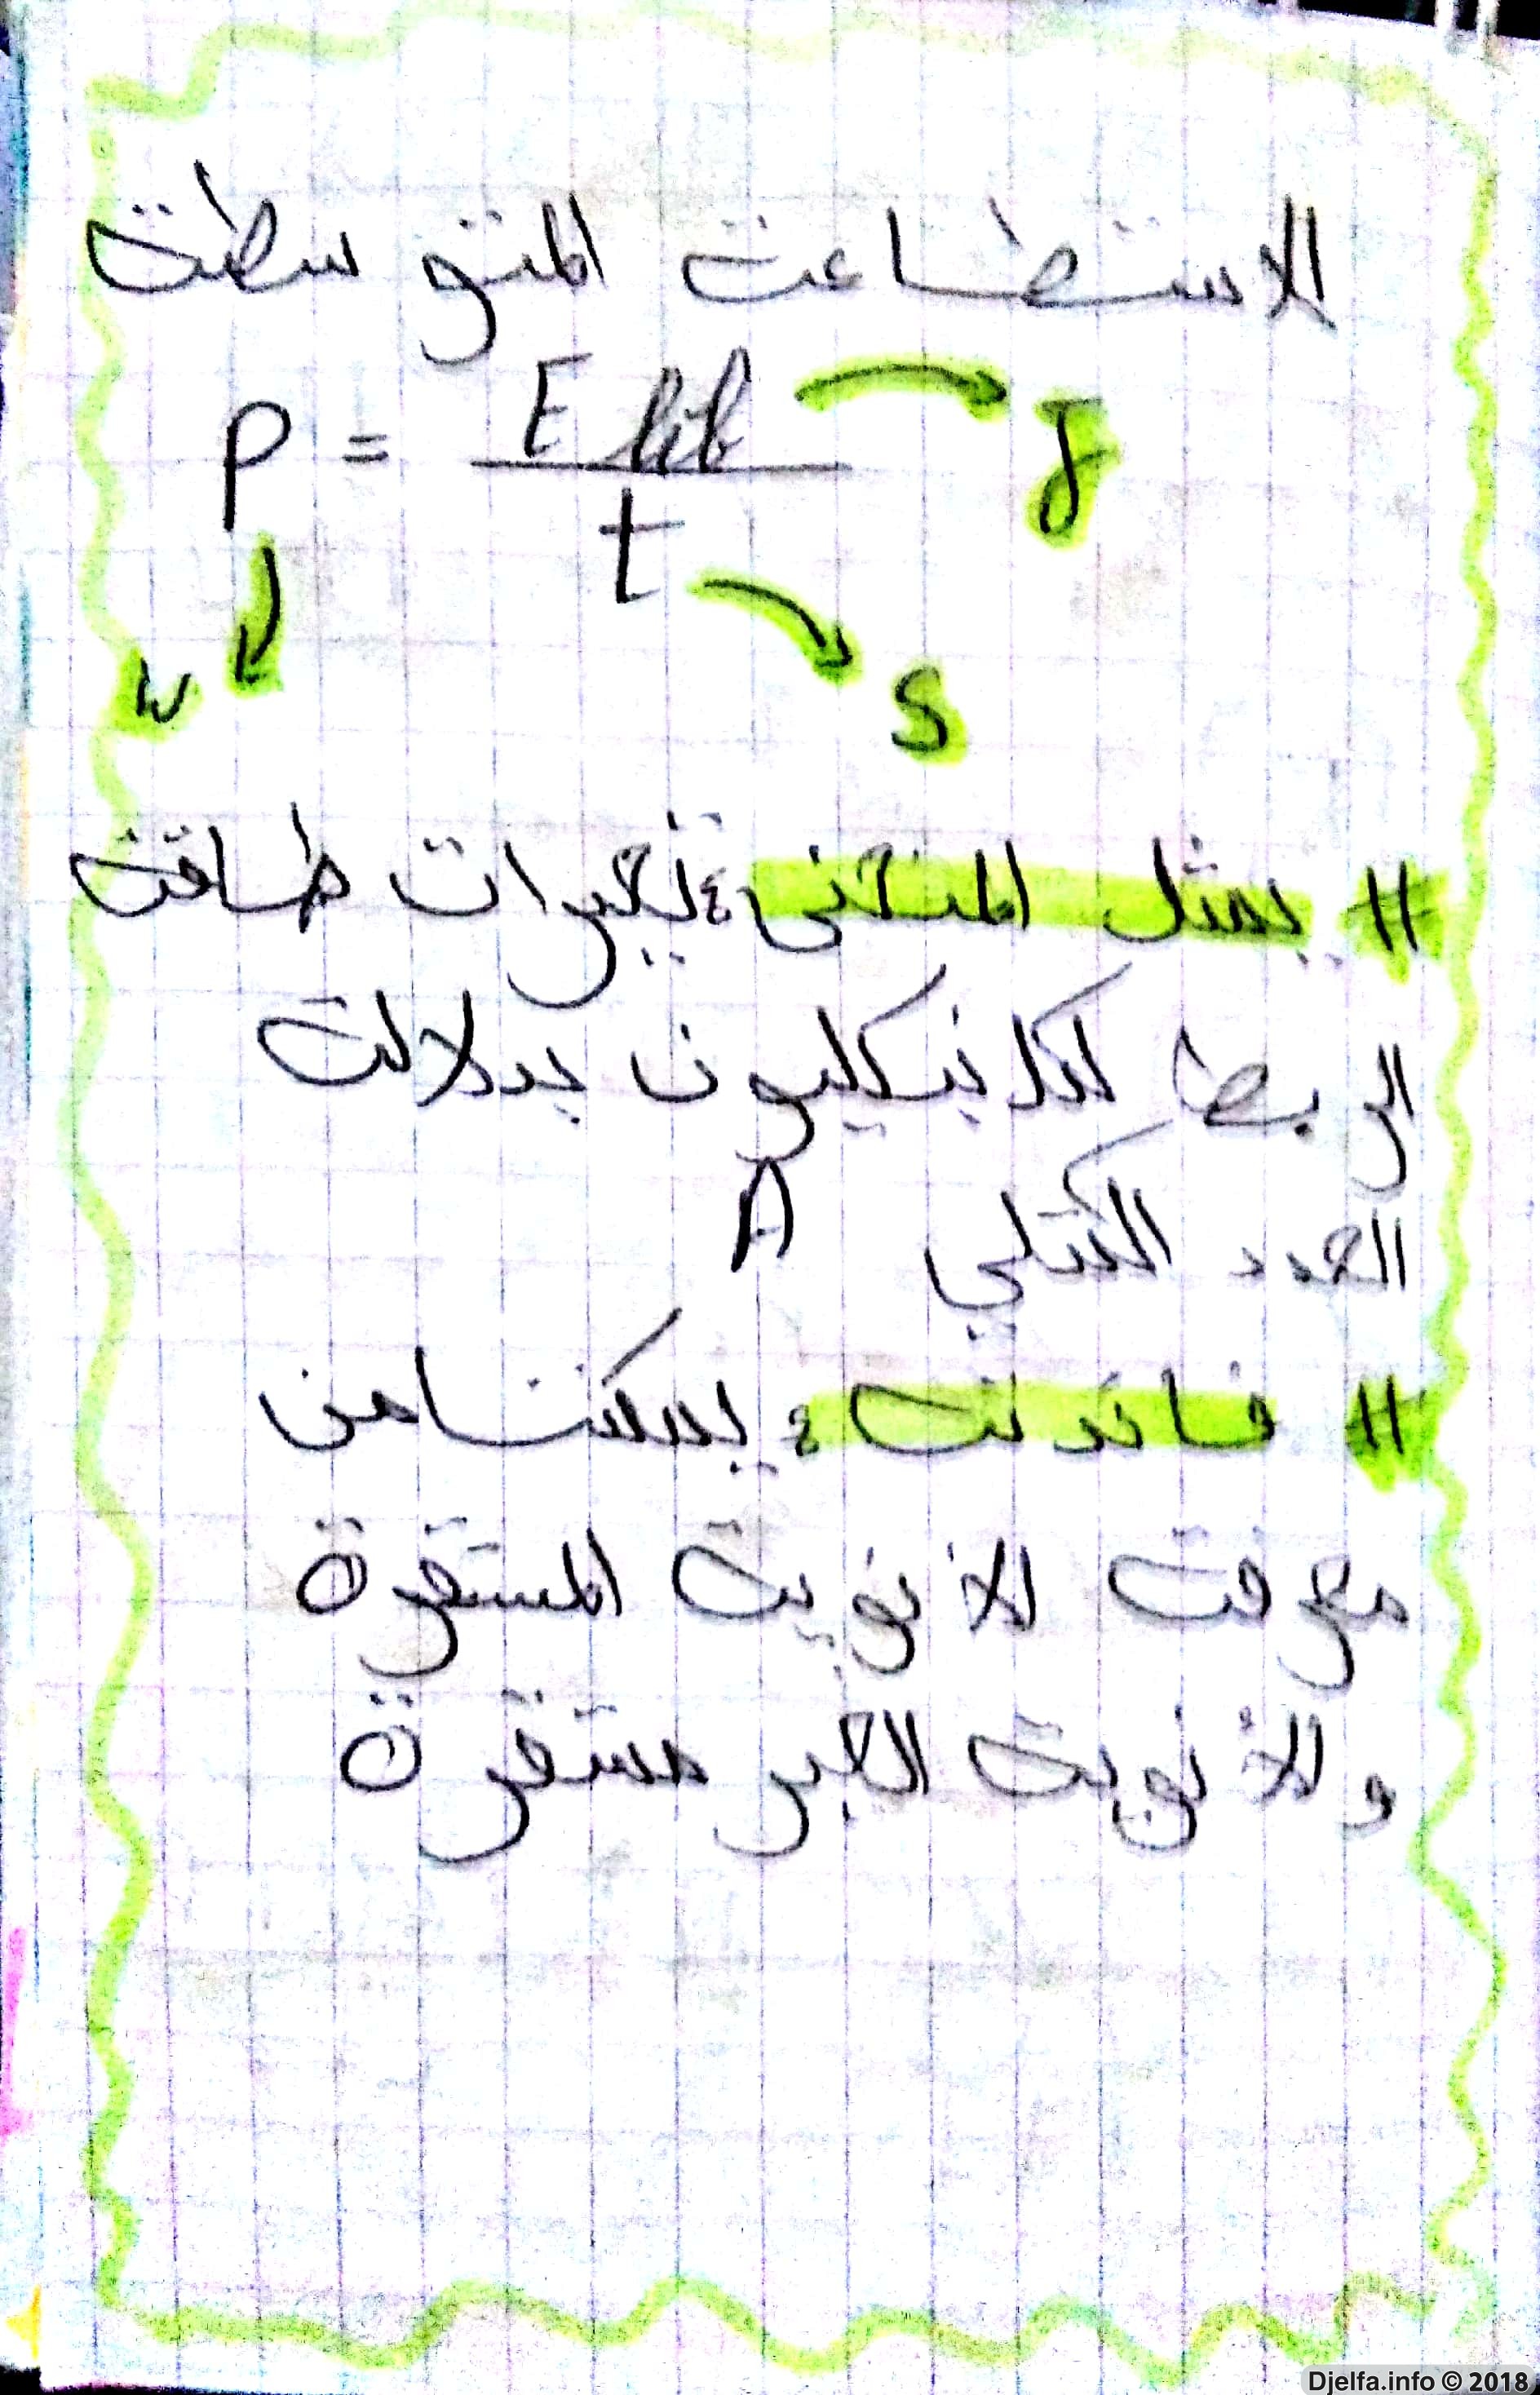 الاستطاعة المتوسطة
P = E lib / t
J
s
w
// يمثل المنحنى : تغيرات طاقة
الربط لكل نيكليون بدلالة
العدد الكتلي A
// فائدته : يمكننا من
معرفة الأنوية المستقرة
والأنوية الغير مستقرة
Djelfa.info © 2018